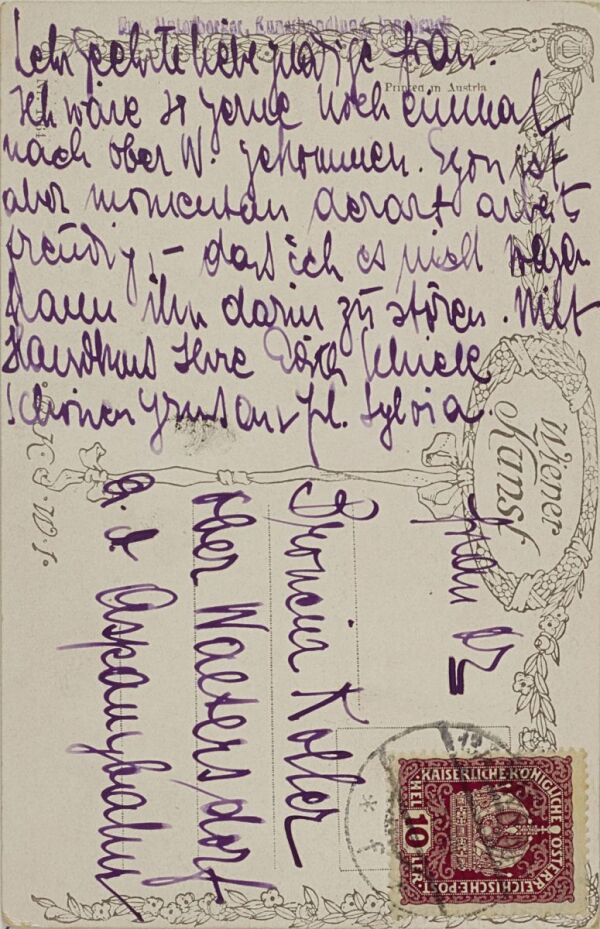 Sehr geehrte liebe gnädige Frau.
Ich wäre so gerne noch einmal
nach Ober W. gekommen. Egon ist
aber momentan derart arbeits
freudig, – dass ich es nicht
ihn darin zu stören. Mit
Handkuss Ihre Edith Schiele
Schönen Gruss an Frl. Sylvia.
Kunsthandlung, Innsbruck
Printed in Austria
Wiener
Kunst
Frau Dr
Broncia Koller
Ober Waltersdorf
a. d. Aspangbahn
KAISERLICHE KÖNIGLICHE ÖSTER
REICHISCHE POST
10
HELLER